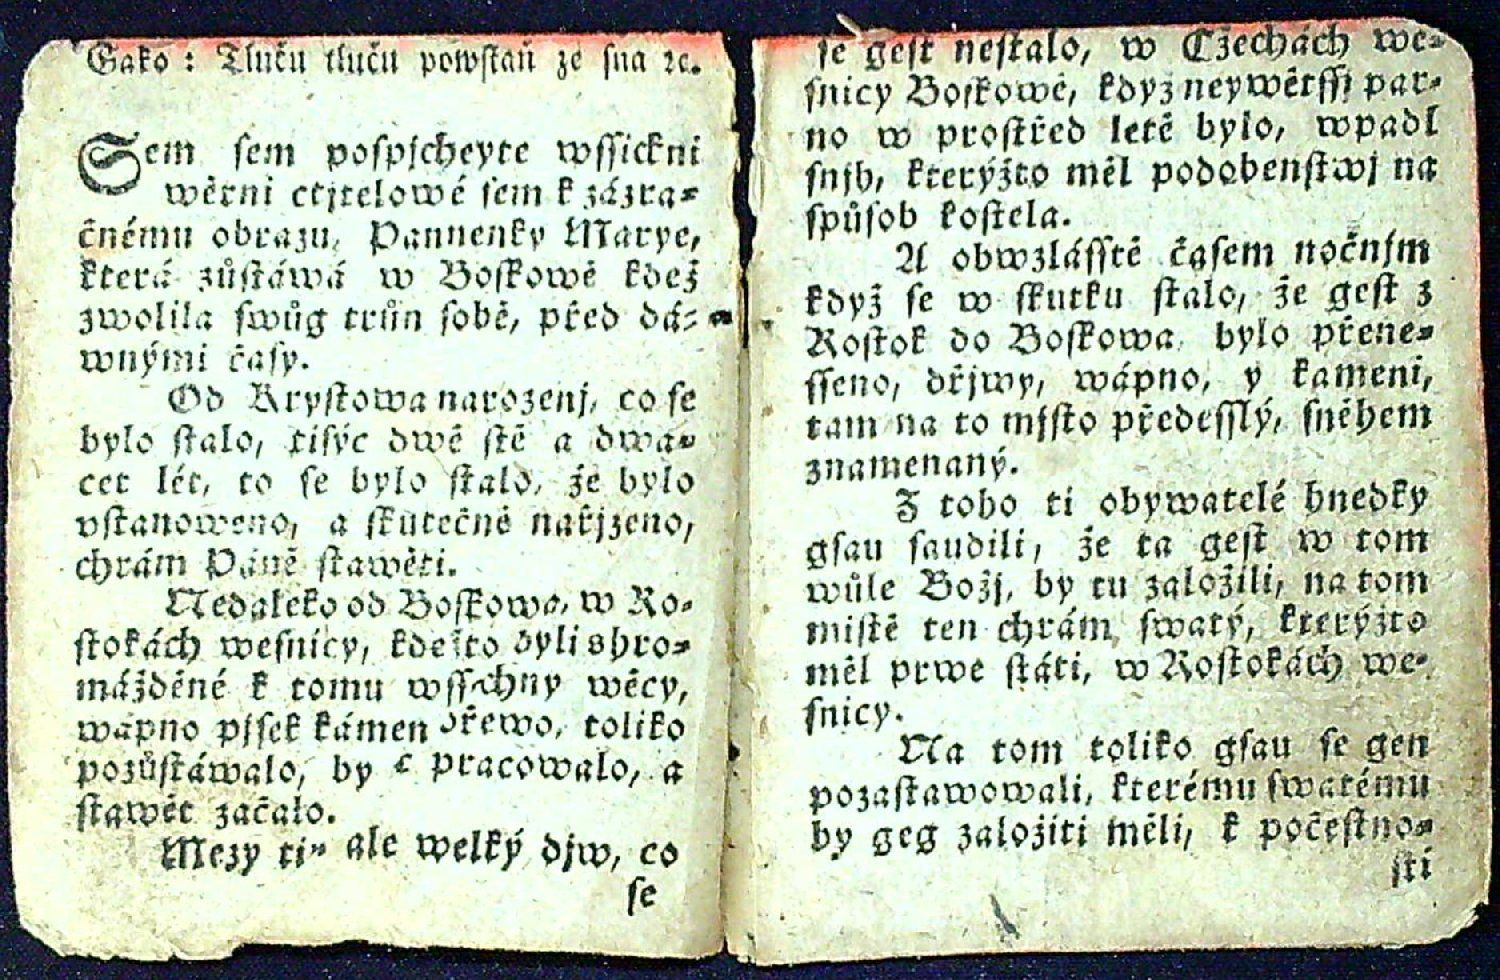 Gako: Tluču tluču powstaň ze sna ꝛc.
Sem sem pospjcheyte wssickni
wěrni ctjtelowé sem k zázra-
čnému obrazu, Pannenky Marye,
která zůstáwá w Boskowě kdež
zwolila swůg trůn sobě, před dá-
wnými časy.
Od Krystowa narozenj, co se
bylo stalo, tisýc dwě stě a dwa-
cet lét, to se bylo stalo, že bylo
vstanoweno, a skutečně nařjzeno,
chrám Páně stawěti.
Nedaleko od Boskowa, w Ro-
stokách wesnicy, kdežto byli shro-
mážděné k tomu wssechny wěcy,
wápno pjsek kámen dřewo, toliko
pozůstáwalo, by pracowalo, a
stawět začalo.
Mezy tjm ale welký djw, co
se
se gest nestalo, w Cžechách we-
snicy Boskowě, když neywětssj par-
no w prostřed letě bylo, wpadl
snjh, kterýžto měl podobenstwj na
spůsob kostela.
A obwzlásstě časem nočnjm
když se w skutku stalo, že gest z
Rostok do Boskowa bylo přene-
sseno, dřjwy, wápno, y kameni,
tam na to mjsto předesslý, sněhem
znamenaný.
Z toho ti obywatelé hnedky
gsau saudili, že ta gest w tom
wůle Božj, by tu založili, na tom
mistě ten chrám swatý, kterýžto
měl prwe státi, w Rostokách we-
snicy.
Na tom toliko gsau se gen
pozastawowali, kterému swatému
by geg založiti měli, k počestno-
sti